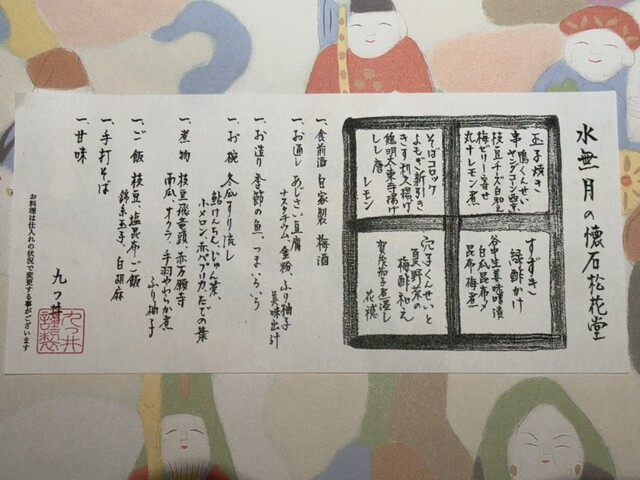 水無月の懐石松花堂
玉子焼き
鴨くんせい
串 ヤングコーン西京
枝豆チーズ白和え
梅ゼリー寄せ
丸十レモン煮
すずき
緑酢かけ
谷中生姜味噌漬
白瓜昆布〆
昆布梅煮
そばコロッケ
よもぎ麩新引き
きす利久揚げ
穴子くんせいと
夏野菜の
梅酢和え
賀茂茄子煮浸し
花穂
一、食前酒 自家製 梅酒
一、お通し あじさい豆腐
ナスタチウム、金粉、ふり柚子
美味出汁
一、お造り 季節の魚、つまいろいろ
一、お椀 冬瓜すり流し
鮎けんちん、じゅん菜、
小メロン、赤パプリカ、たでの葉
一、煮物 枝豆飛竜頭、赤万願寺
南瓜、オクラ、手羽やわらか煮
ふり柚子
一、ご飯 枝豆、塩昆布ご飯
錦糸玉子、白胡麻
一、手打そば
一、甘味
九つ井
お料理は仕入れの状況で変更する事がございます